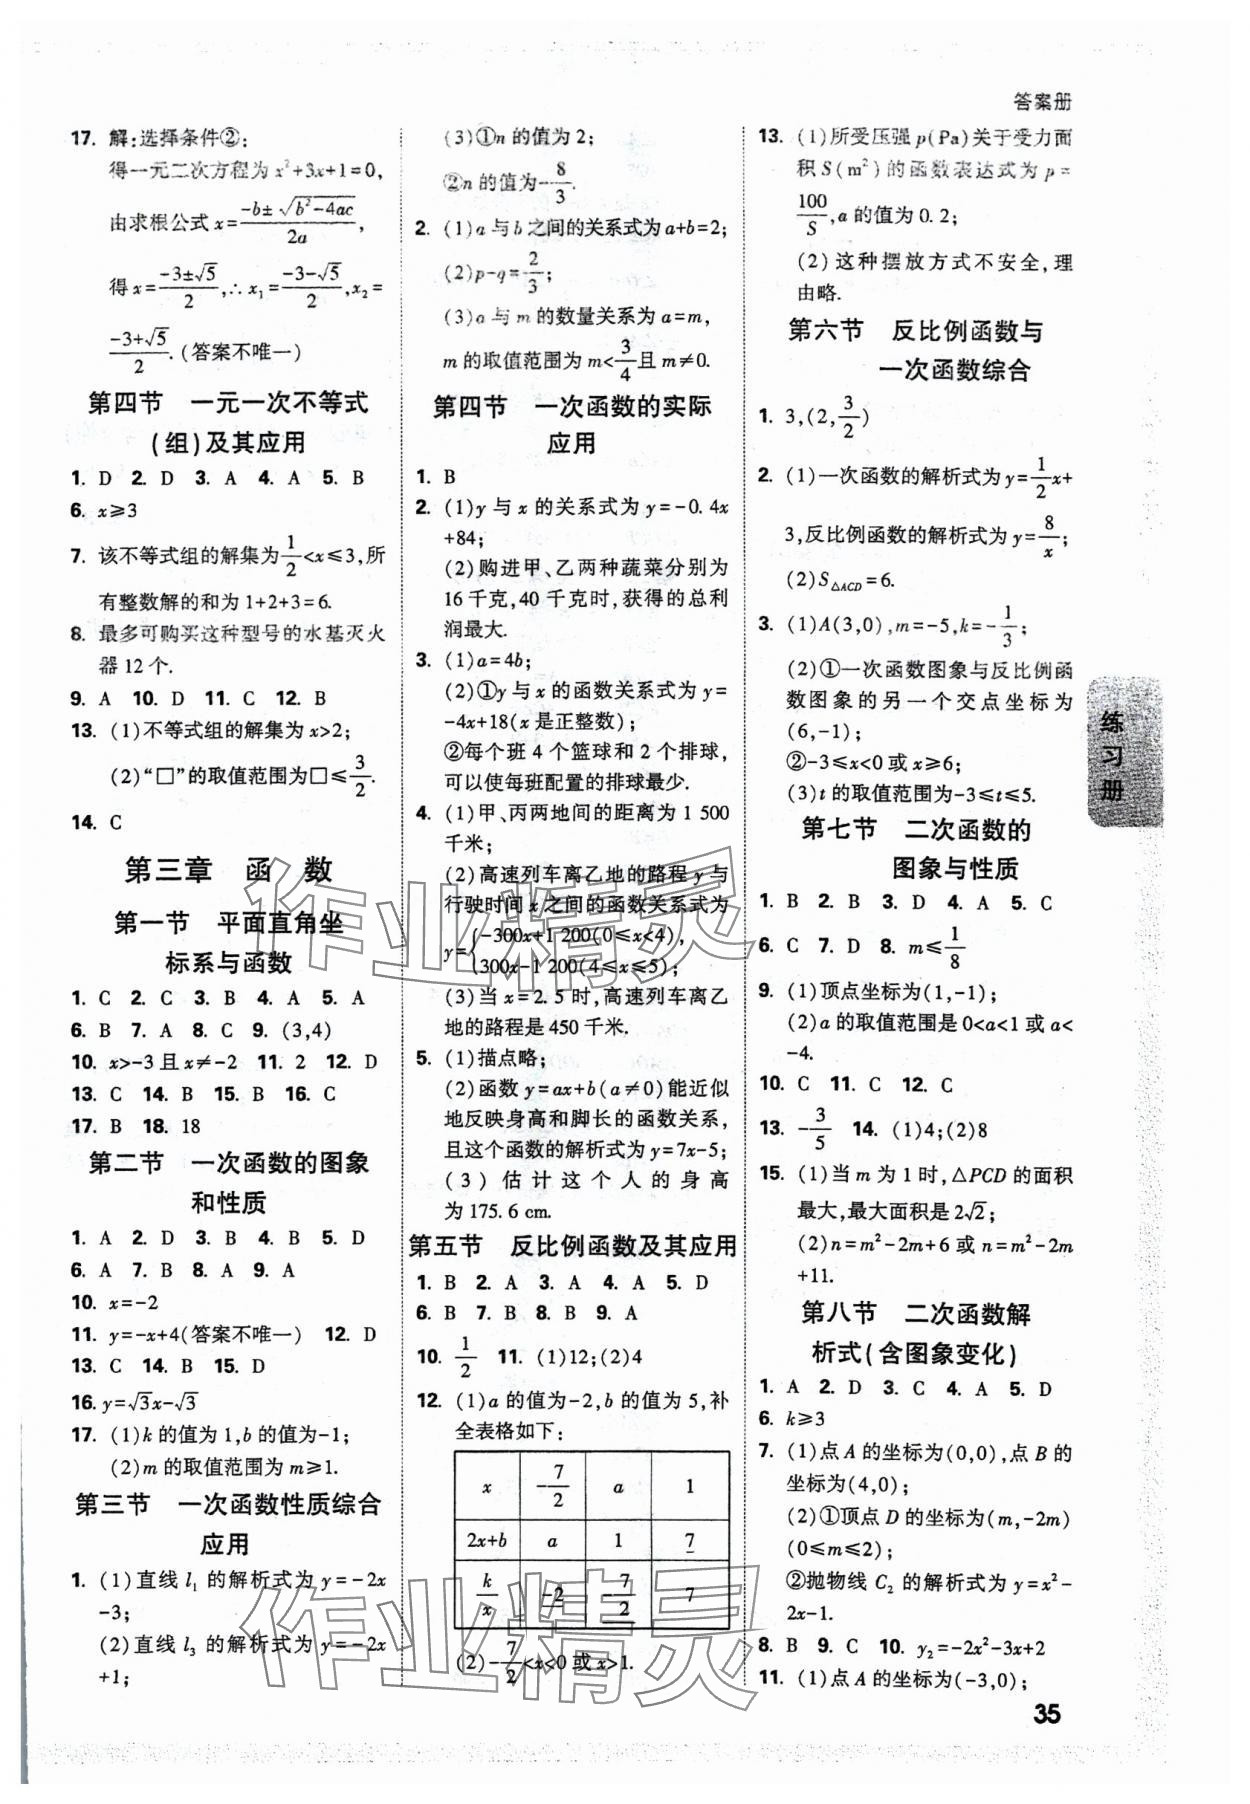 答案册
17. 解:选择条件②:
得一元二次方程为 x²+3x+1=0,
由求根公式 x=\frac{-b±\sqrt{b²-4ac}}{2a},
得 x=\frac{-3±√5}{2},∴x₁=\frac{-3-√5}{2},x₂=
\frac{-3+√5}{2}.(答案不唯一)
第四节 一元一次不等式
(组)及其应用
1. D 2. D 3. A 4. A 5. B
6. x≥3
7. 该不等式组的解集为\frac{1}{2}<x≤3,所
有整数解的和为 1+2+3=6.
8. 最多可购买这种型号的水基灭火
器 12 个.
9. A 10. D 11. C 12. B
13. (1)不等式组的解集为 x>2;
(2)“□”的取值范围为□≤\frac{3}{2}.
14. C
第三章 函 数
第一节 平面直角坐
标系与函数
1. C 2. C 3. B 4. A 5. A
6. B 7. A 8. C 9. (3,4)
10. x>-3 且 x≠-2 11. 2 12. D
13. C 14. B 15. B 16. C
17. B 18. 18
第二节 一次函数的图象
和性质
1. A 2. D 3. B 4. B 5. D
6. A 7. B 8. A 9. A
10. x=-2
11. y=-x+4(答案不唯一) 12. D
13. C 14. B 15. D
16. y=√3x-√3
17. (1)k 的值为 1,b 的值为-1;
(2)m 的取值范围为 m≥1.
第三节 一次函数性质综合
应用
1. (1)直线 l₁ 的解析式为 y=-2x
-3;
(2)直线 l₃ 的解析式为 y=-2x
+1;
(3)①n 的值为 2;
②n 的值为-\frac{8}{3}.
2. (1)a 与 b 之间的关系式为 a+b=2;
(2)p-q=\frac{2}{3};
(3)a 与 m 的数量关系为 a=m,
m 的取值范围为 m<\frac{3}{4}且 m≠0.
第四节 一次函数的实际
应用
1. B
2. (1)y 与 x 的关系式为 y=-0.4x
+84;
(2)购进甲、乙两种蔬菜分别为
16 千克,40 千克时,获得的总利
润最大.
3. (1)a=4b;
(2)①y 与 x 的函数关系式为 y=
-4x+18(x 是正整数);
②每个班 4 个篮球和 2 个排球,
可以使每班配置的排球最少.
4. (1)甲、丙两地间的距离为 1 500
千米;
(2)高速列车离乙地的路程 y 与
行驶时间 x 之间的函数关系式为
y={-300x+1 200(0≤x<4),
300x-1 200(4≤x≤5);
(3)当 x=2.5 时,高速列车离乙
地的路程是 450 千米.
5. (1)描点略;
(2)函数 y=ax+b(a≠0)能近似
地反映身高和脚长的函数关系,
且这个函数的解析式为 y=7x-5;
(3)估计这个人的身高
为 175.6 cm.
第五节 反比例函数及其应用
1. B 2. A 3. A 4. A 5. D
6. B 7. B 8. B 9. A
10. \frac{1}{2} 11. (1)12;(2)4
12. (1)a 的值为-2,b 的值为 5,补
全表格如下:
x -\frac{7}{2} a 1
2x+b a 1 7
\frac{k}{x} -2 -\frac{7}{2} 7
(2)-\frac{7}{2}<x<0 或 x>1.
13. (1)所受压强 p(Pa)关于受力面
积 S(m²)的函数表达式为 p=
\frac{100}{S},a 的值为 0.2;
(2)这种摆放方式不安全,理
由略.
第六节 反比例函数与
一次函数综合
1. 3,(2,\frac{3}{2})
2. (1)一次函数的解析式为 y=\frac{1}{2}x+
3,反比例函数的解析式为 y=\frac{8}{x};
(2)S△ACD=6.
3. (1)A(3,0),m=-5,k=-\frac{1}{3};
(2)①一次函数图象与反比例函
数图象的另一个交点坐标为
(6,-1);
②-3≤x<0 或 x≥6;
(3)t 的取值范围为-3≤t≤5.
第七节 二次函数的
图象与性质
1. B 2. B 3. D 4. A 5. C
6. C 7. D 8. m≤\frac{1}{8}
9. (1)顶点坐标为(1,-1);
(2)a 的取值范围是 0<a<1 或 a<
-4.
10. C 11. C 12. C
13. -\frac{3}{5} 14. (1)4;(2)8
15. (1)当 m 为 1 时,△PCD 的面积
最大,最大面积是 2√2;
(2)n=m²-2m+6 或 n=m²-2m
+11.
第八节 二次函数解
析式(含图象变化)
1. A 2. D 3. C 4. A 5. D
6. k≥3
7. (1)点 A 的坐标为(0,0),点 B 的
坐标为(4,0);
(2)①顶点 D 的坐标为(m,-2m)
(0≤m≤2);
②抛物线 C₂ 的解析式为 y=x²-
2x-1.
8. B 9. C 10. y₂=-2x²-3x+2
11. (1)点 A 的坐标为(-3,0);
练习册
35
作业精灵
作业精灵